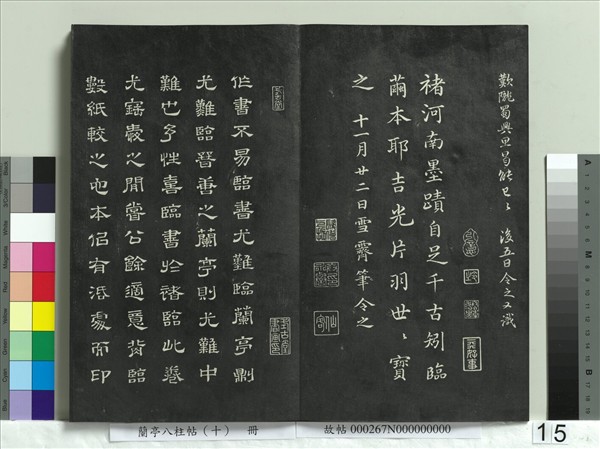 歎隴蜀興思曷能已〻 後五日令之又識
褚河南墨蹟自足千古矧臨
蘭本耶吉光片羽世〻寶
之 十一月廿二日雪霽筆令之
作書不易臨書尤難臨蘭亭則
尤難臨㝡善之蘭亭則尤難中
難也予性喜臨書於諸臨此卷
尤之間嘗公餘適意背臨
數紙較之他本佀有活處而印
蘭亭八柱帖（十） 冊
故帖 000267N000000000
15
Black
3/Color
White
Magenta
Red
Yellow
Green
Cyan
Blue
A
M
B